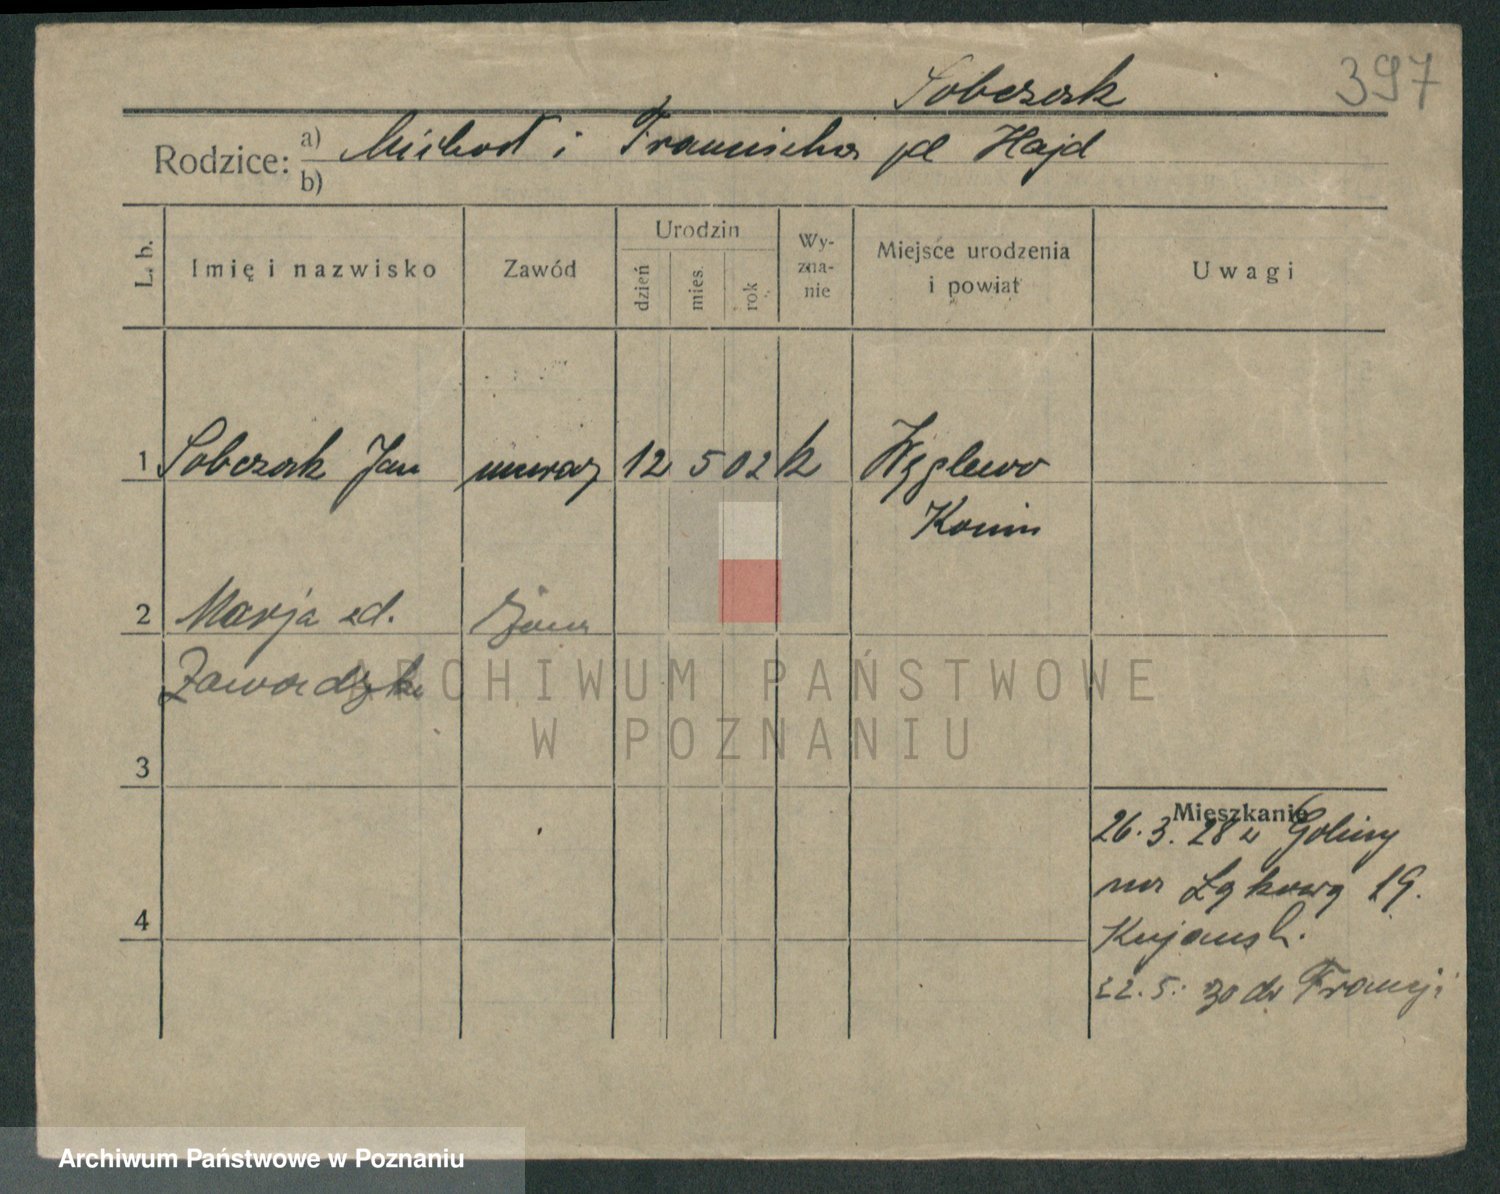 Sobczak
397
Rodzice: a) Michał i Franciszka zd Hajd
b)
L. b.
Imię i nazwisko
Zawód
Urodzin
dzień
mies.
rok
Wy-
zna-
nie
Miejsce urodzenia
i powiat
Uwagi
1 Sobczak Jan murarz 12 5 02 k Węglewo
Konin
2 Marja zd. żona
Zawadzka
3
4
Mieszkanie
26.3.28 z Goliny
na Łąkową 19.
Kujawsk.
22.5.30 do Francji
ARCHIWUM PAŃSTWOWE
W POZNANIU
Archiwum Państwowe w Poznaniu